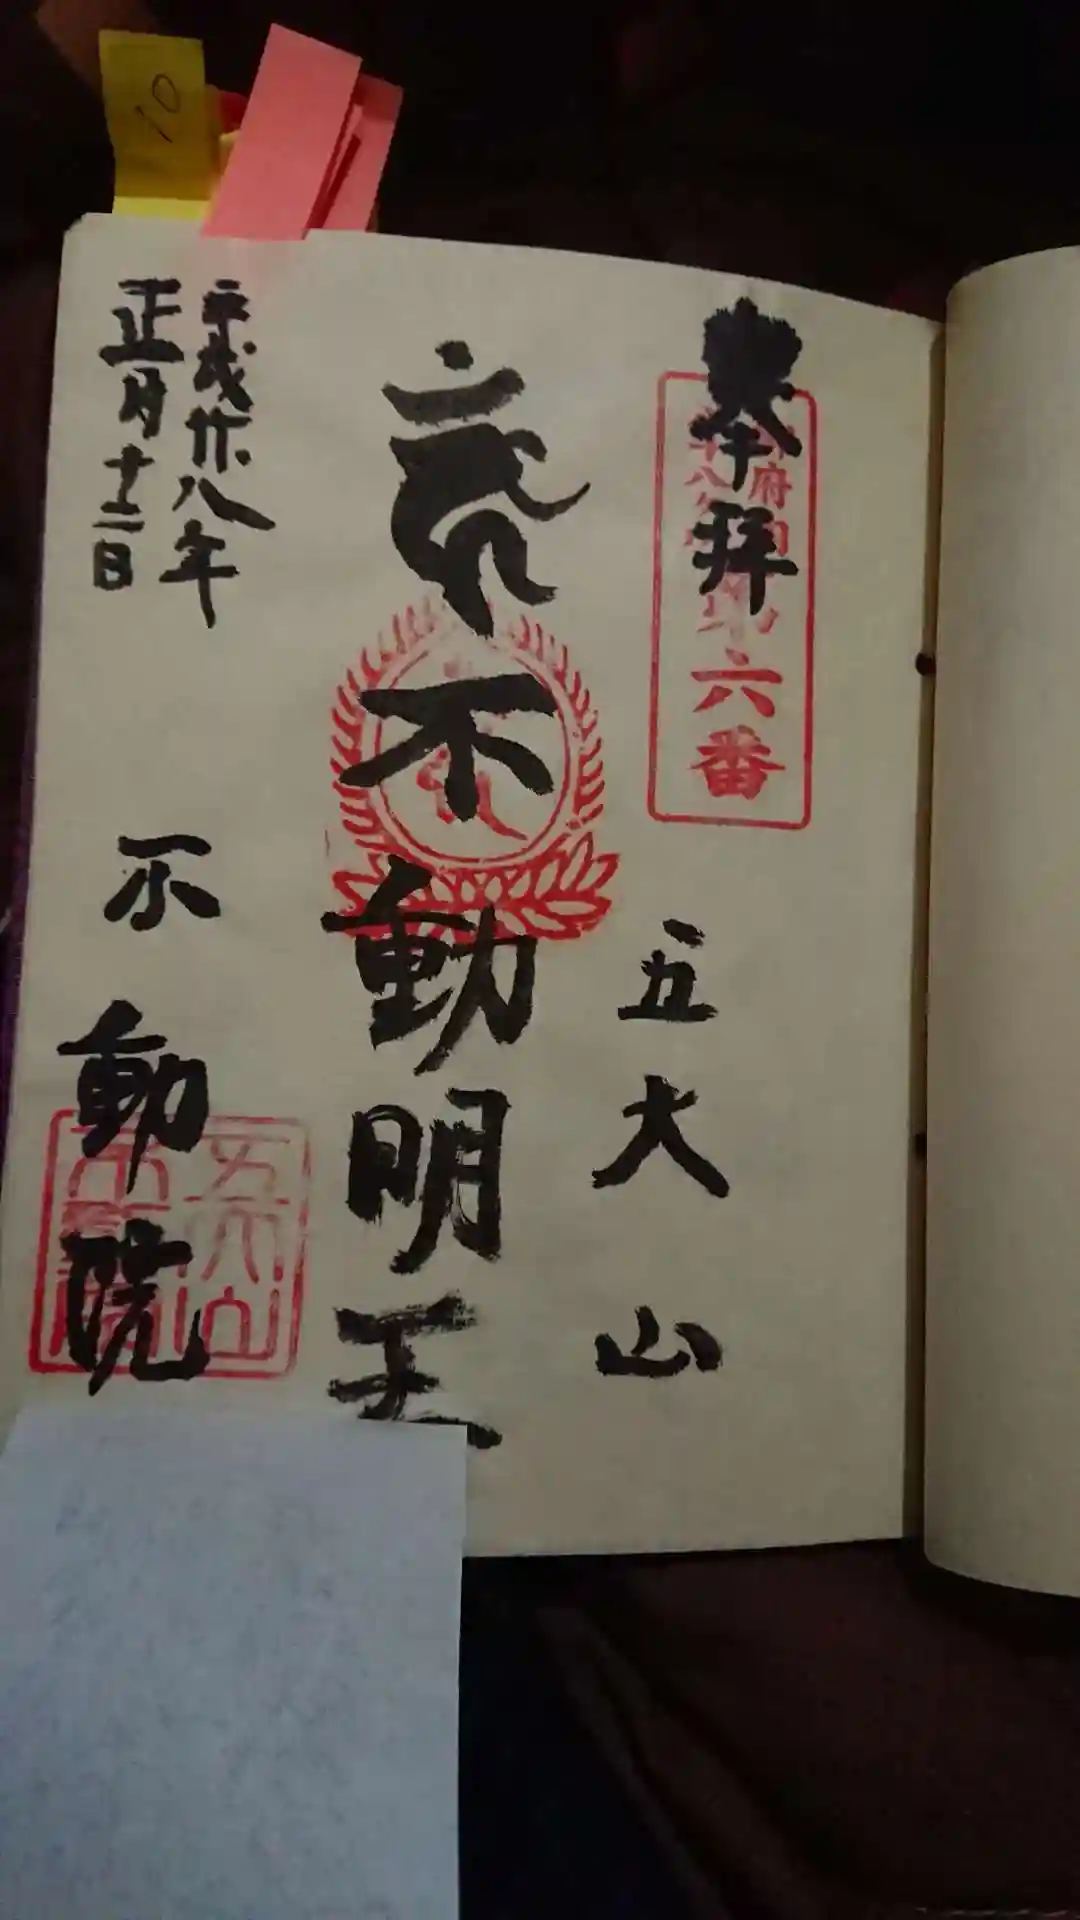 奉拝
第六番
五大山
不動明王
平成廿八年
正月十二日
不動院
五大山
10